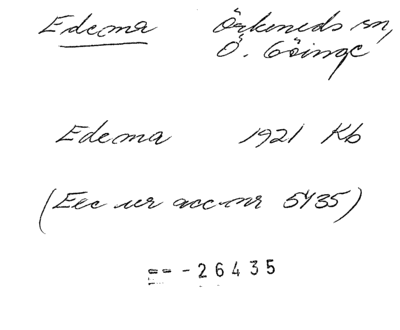 Edema Örkeneds sn,
Ö. Göinge
Edema 1921 Kb
(Exc ur acc nr 5435)
== - 26435